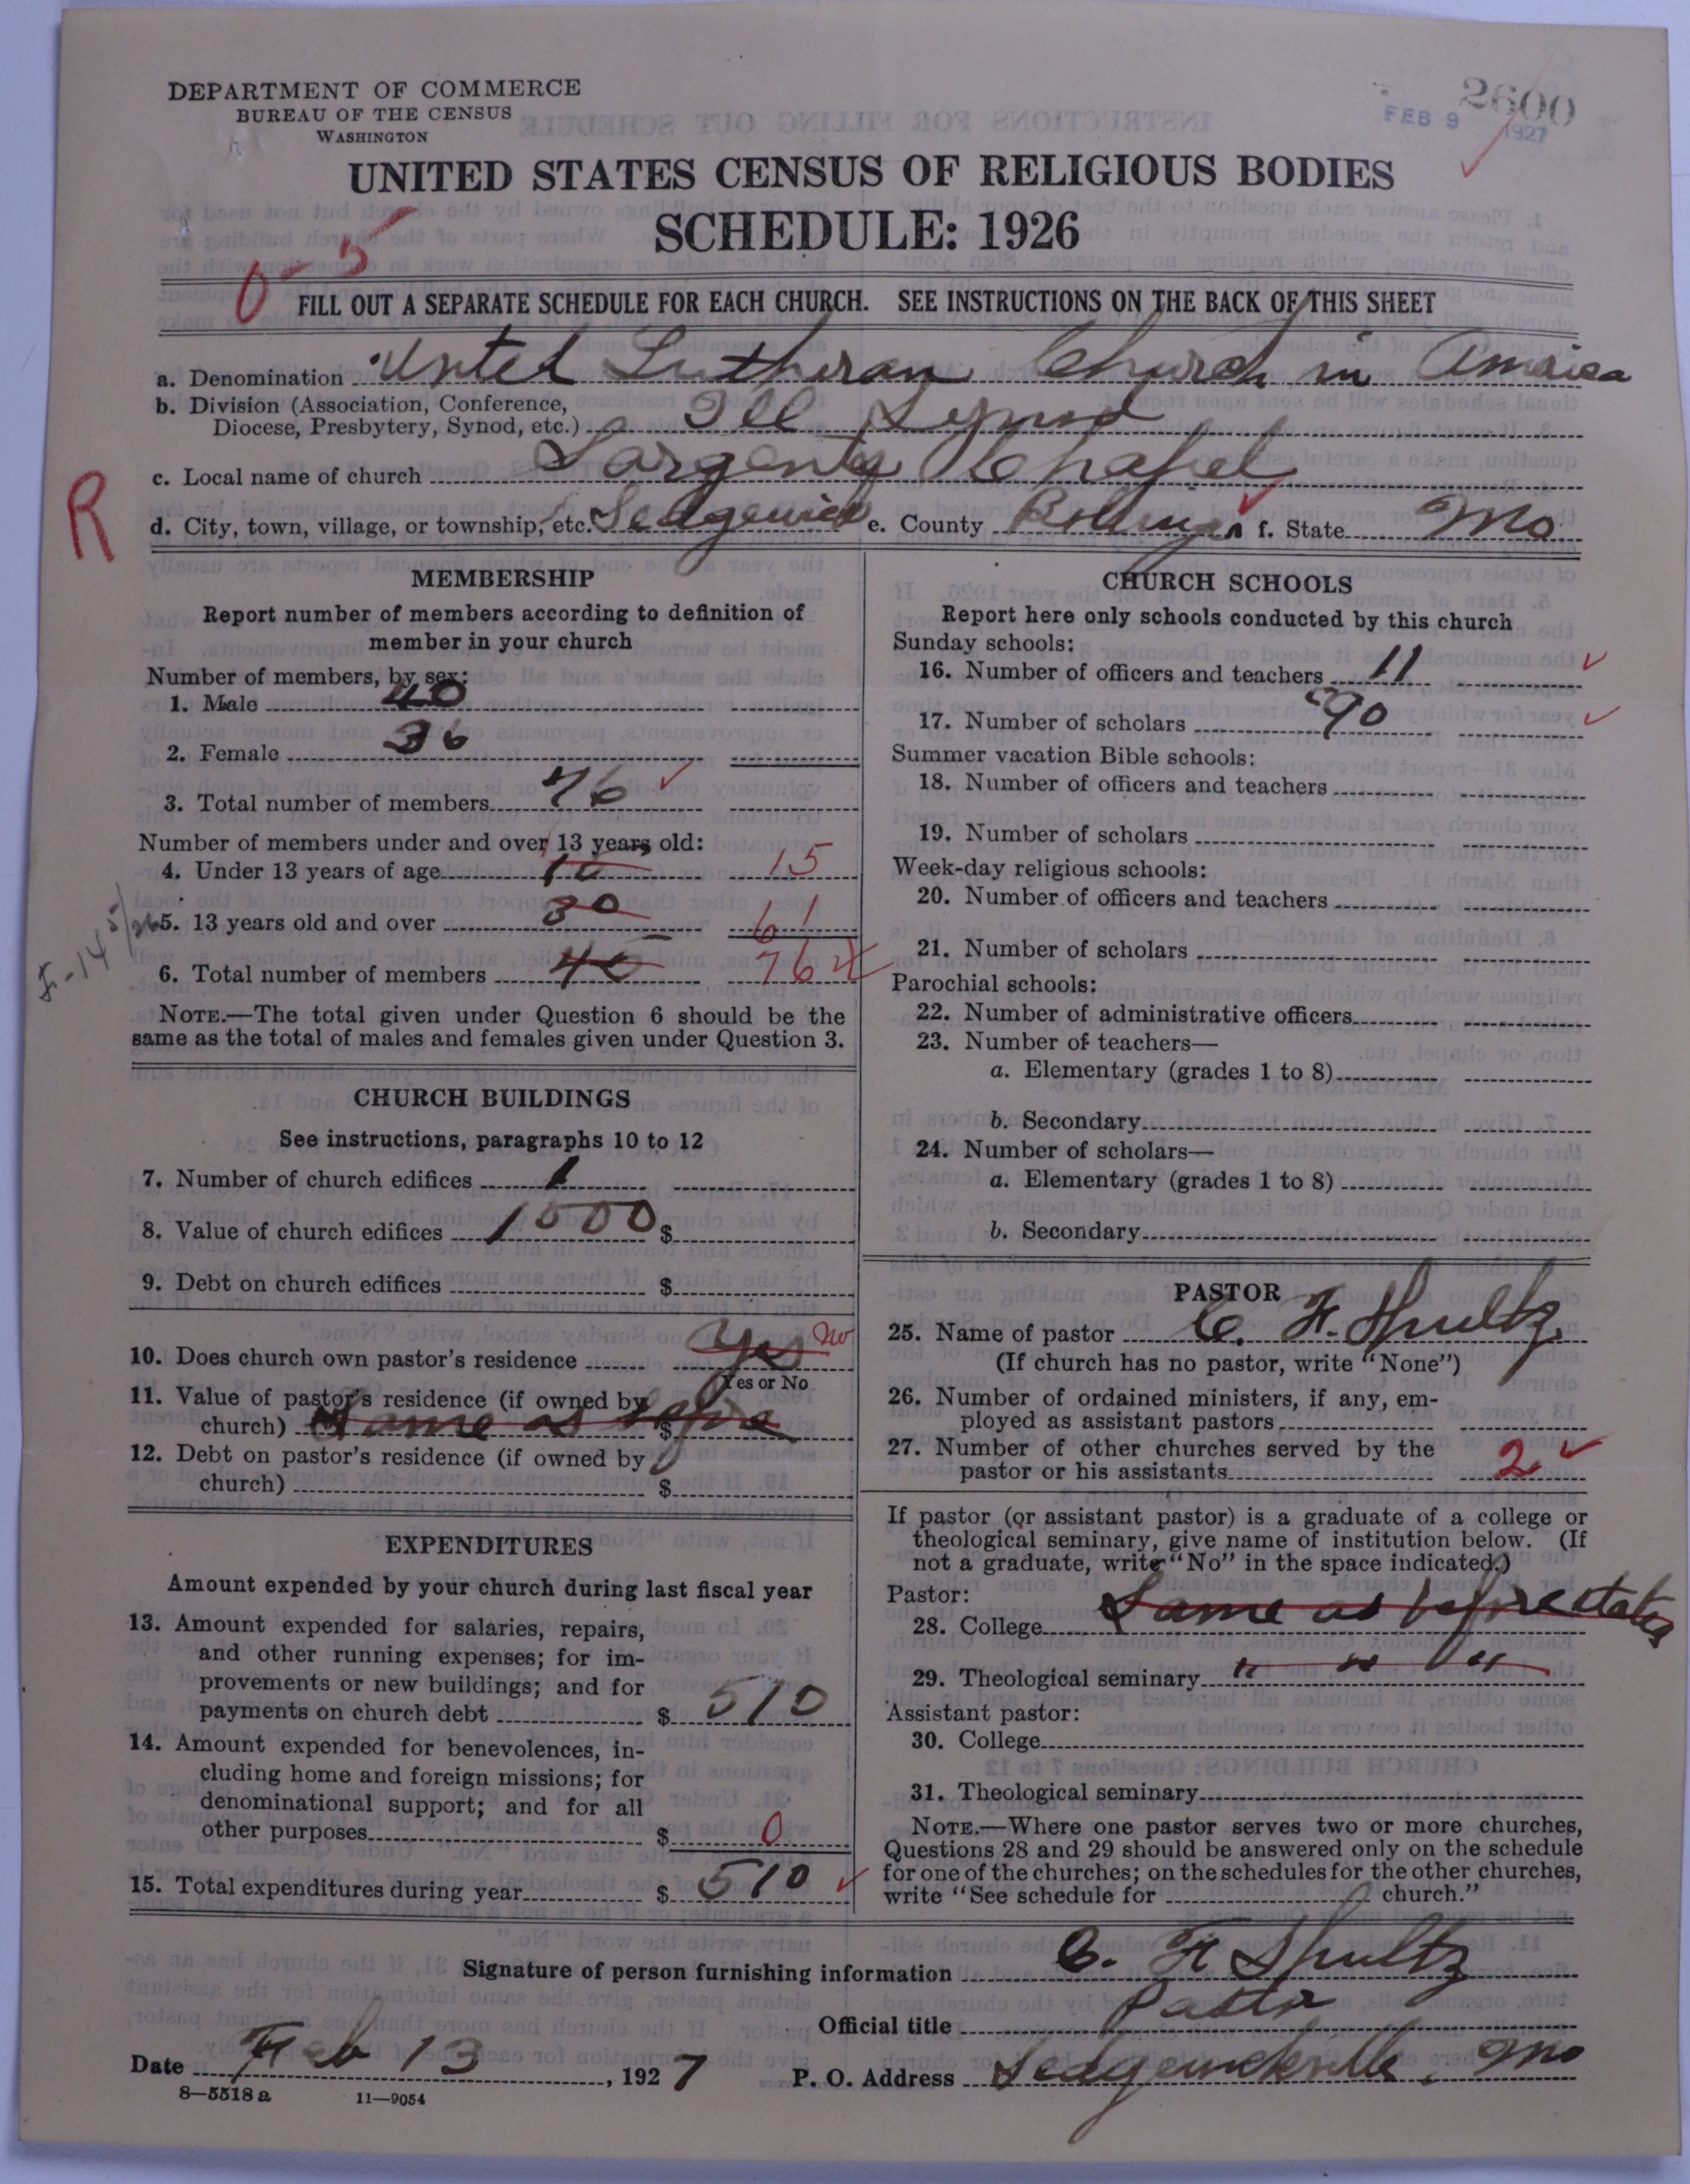 DEPARTMENT OF COMMERCE
BUREAU OF THE CENSUS
WASHINGTON
2600
FEB 9 1927
UNITED STATES CENSUS OF RELIGIOUS BODIES
SCHEDULE: 1926
0-5
FILL OUT A SEPARATE SCHEDULE FOR EACH CHURCH. SEE INSTRUCTIONS ON THE BACK OF THIS SHEET
a. Denomination United Lutheran Church in America
b. Division (Association, Conference,
Diocese, Presbytery, Synod, etc.) Ill Synod
c. Local name of church Sargents Chapel
R
d. City, town, village, or township, etc. Sedgewick e. County Bollinger f. State Mo
MEMBERSHIP
Report number of members according to definition of
member in your church
Number of members, by sex:
1. Male 40
2. Female 36
3. Total number of members 76
Number of members under and over 13 years old:
4. Under 13 years of age 15
5. 13 years old and over 30 61
6. Total number of members 76
NOTE.—The total given under Question 6 should be the
same as the total of males and females given under Question 3.
CHURCH BUILDINGS
See instructions, paragraphs 10 to 12
7. Number of church edifices 1
8. Value of church edifices 1000 $
9. Debt on church edifices $
10. Does church own pastor's residence Yes No
Yes or No
11. Value of pastor's residence (if owned by
church) Same as before $
12. Debt on pastor's residence (if owned by
church) $
EXPENDITURES
Amount expended by your church during last fiscal year
13. Amount expended for salaries, repairs,
and other running expenses; for im-
provements or new buildings; and for
payments on church debt $ 510
14. Amount expended for benevolences, in-
cluding home and foreign missions; for
denominational support; and for all
other purposes $ 0
15. Total expenditures during year $ 510
CHURCH SCHOOLS
Report here only schools conducted by this church
Sunday schools:
16. Number of officers and teachers 11
17. Number of scholars 90
Summer vacation Bible schools:
18. Number of officers and teachers
19. Number of scholars
Week-day religious schools:
20. Number of officers and teachers
21. Number of scholars
Parochial schools:
22. Number of administrative officers
23. Number of teachers—
a. Elementary (grades 1 to 8)
b. Secondary
24. Number of scholars—
a. Elementary (grades 1 to 8)
b. Secondary
PASTOR
25. Name of pastor C. F. Shultz
(If church has no pastor, write "None")
26. Number of ordained ministers, if any, em-
ployed as assistant pastors
27. Number of other churches served by the
pastor or his assistants 2
If pastor (or assistant pastor) is a graduate of a college or
theological seminary, give name of institution below. (If
not a graduate, write "No" in the space indicated.)
Pastor:
28. College Same as before stated
29. Theological seminary " " "
Assistant pastor:
30. College
31. Theological seminary
NOTE.—Where one pastor serves two or more churches,
Questions 28 and 29 should be answered only on the schedule
for one of the churches; on the schedules for the other churches,
write "See schedule for church."
Signature of person furnishing information C. F. Shultz
Official title Pastor
Date Feb 13, 1927 P. O. Address Sedgewickville, Mo
8—5518 a 11—9054